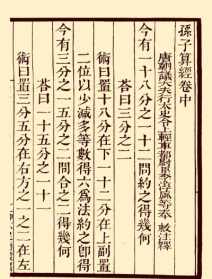 孫子算經卷中
唐朝議大夫行太史令上輕車都尉臣李淳風等奉 敕注釋
今有一十八分之一十二問約之得幾何
荅曰三分之二
術曰置十八分在下一十二分在上副置
二位以少減多等數得六為法約之即得
今有三分之一五分之二問合之二得幾何
荅曰一十五分之十一
術曰置三分五分在右方之一之二在左